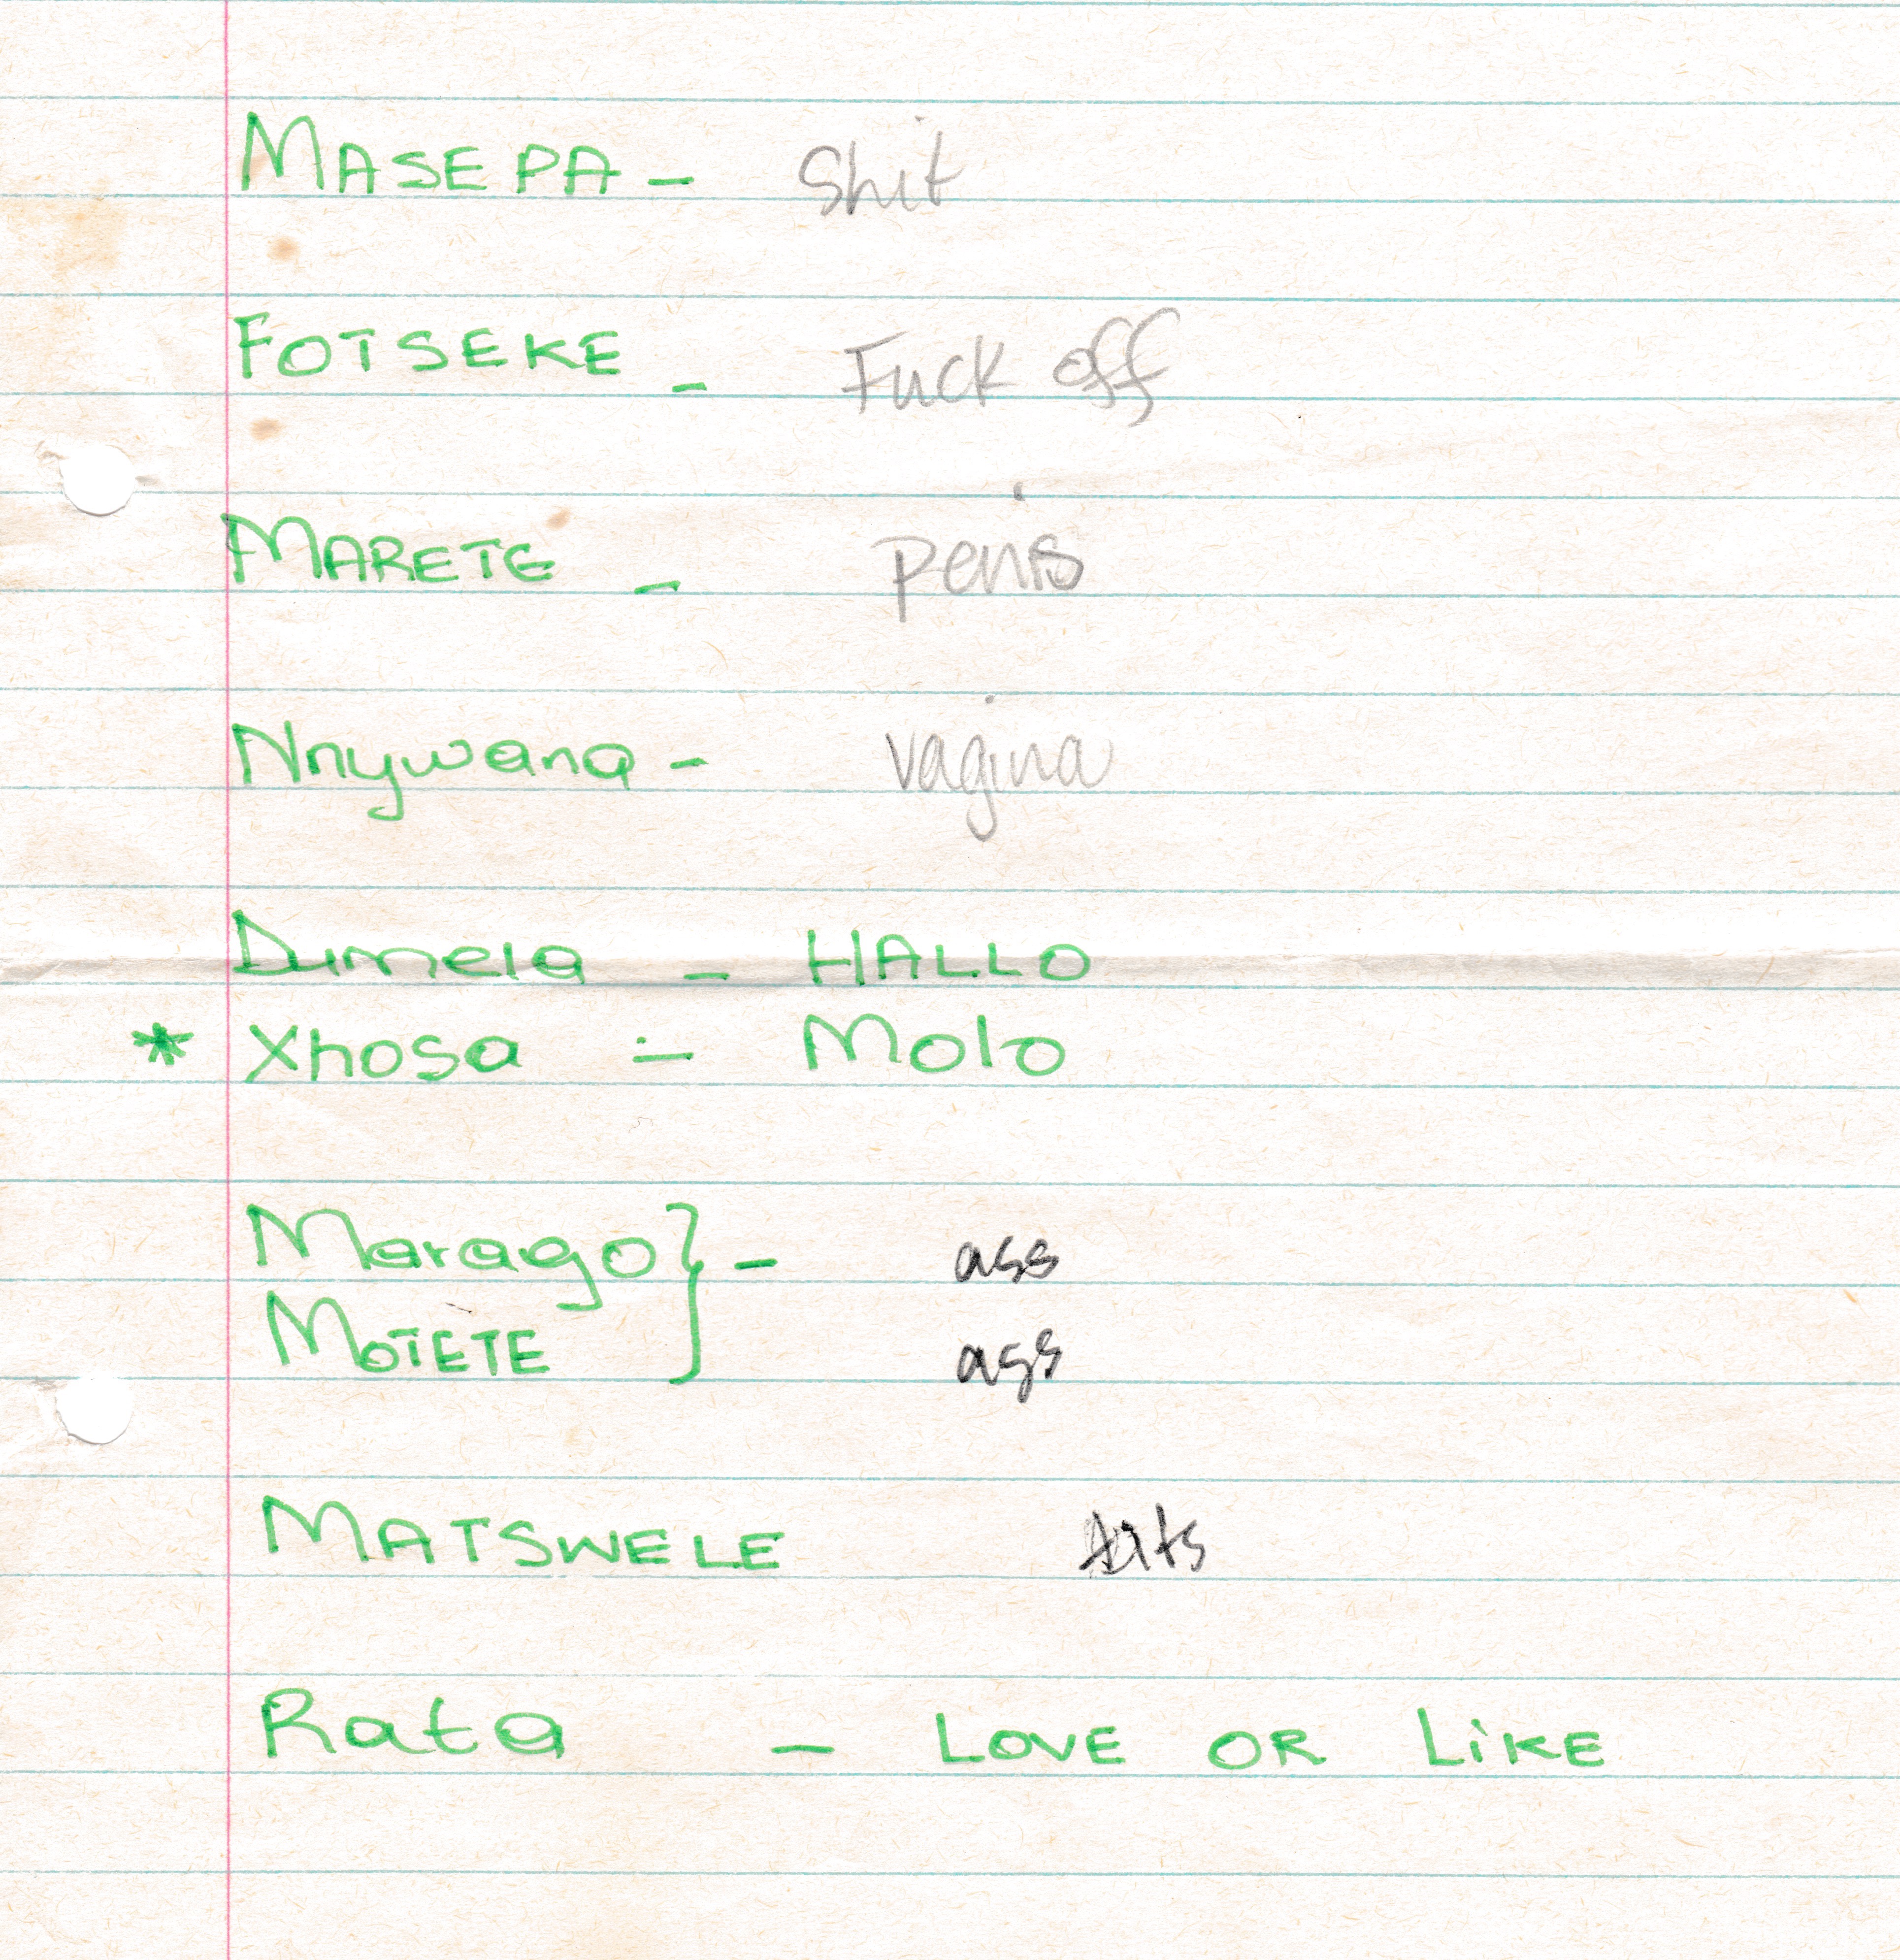 MASEPA - Shit
FOTSEKE - Fuck off
MARETE - penis
Nnywana - vagina
Dumela - HALLO
* Xhosa - Molo
Marago } - ass
MOTETE } ass
MATSWELE tits
Rata - LOVE OR LiKE